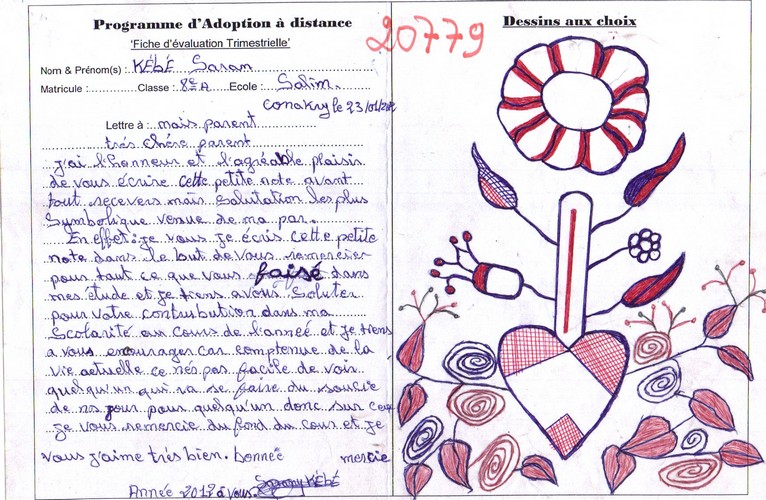 Programme d'Adoption à distance
'Fiche d'évaluation Trimestrielle'
Nom & Prénom(s) : KÉBÉ Saran
Matricule : Classe : 8e A Ecole : Salim.
Conakry le 23/01/202
Lettre à : mais parent
très chère parent
j'ai l'honneur et l'agréable plaisir
de vous écrire cette petite note avant
tout recevers mais salutation les plus
Symbolique venue de ma par.
En effet : je vous je écris cette petite
note dans le but de vous remercier
pour tout ce que vous faisé dans
mes étude et je tiens a vous Saluter
pour votre contribution dans ma
Scolarité au cours de l'anneé et je tiens
a vous encourager car comptenue de la
vie actuelle ce nés pas facile de voir
quelqu'un qui va se faire du soucie
de ns jour pour quelqu'un donc sur ce
je vous remercie du fond du cour et je
vous j'aime très bien. bonneé mercie
Année 2012 à vous. KÉBÉ
Dessins aux choix
20779